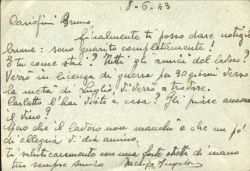 8-6.43
Carissimi Bruno,
Finalmente ti posso dare notizie
buone: sono guarito completamente!
E tu come stai? Tutti gli amici del lavoro?
Verrò in licenza di guerra fra 30 giorni verso
la metà di Luglio, di Verrò a trovare.
Carletto l'hai visto a casa? Gli piace ancora
il vino?
Spero che il lavoro non manchi e che un pò
di allegria vi dia animo,
ti saluto caramente con una forte stretta di mano
tuo sempre amico